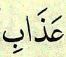 عَذَابِ